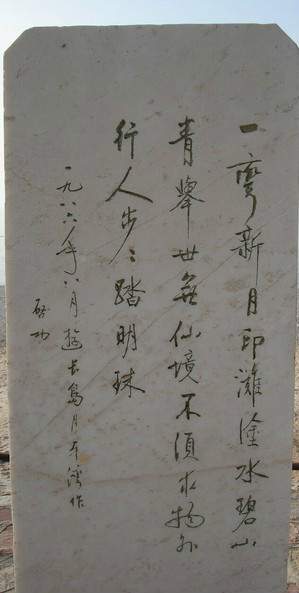 一弯新月印滩涂水碧山
青举世无仙境不须求物外
行人步步踏明珠
一九八六年八月游长岛月牙湾作
启功